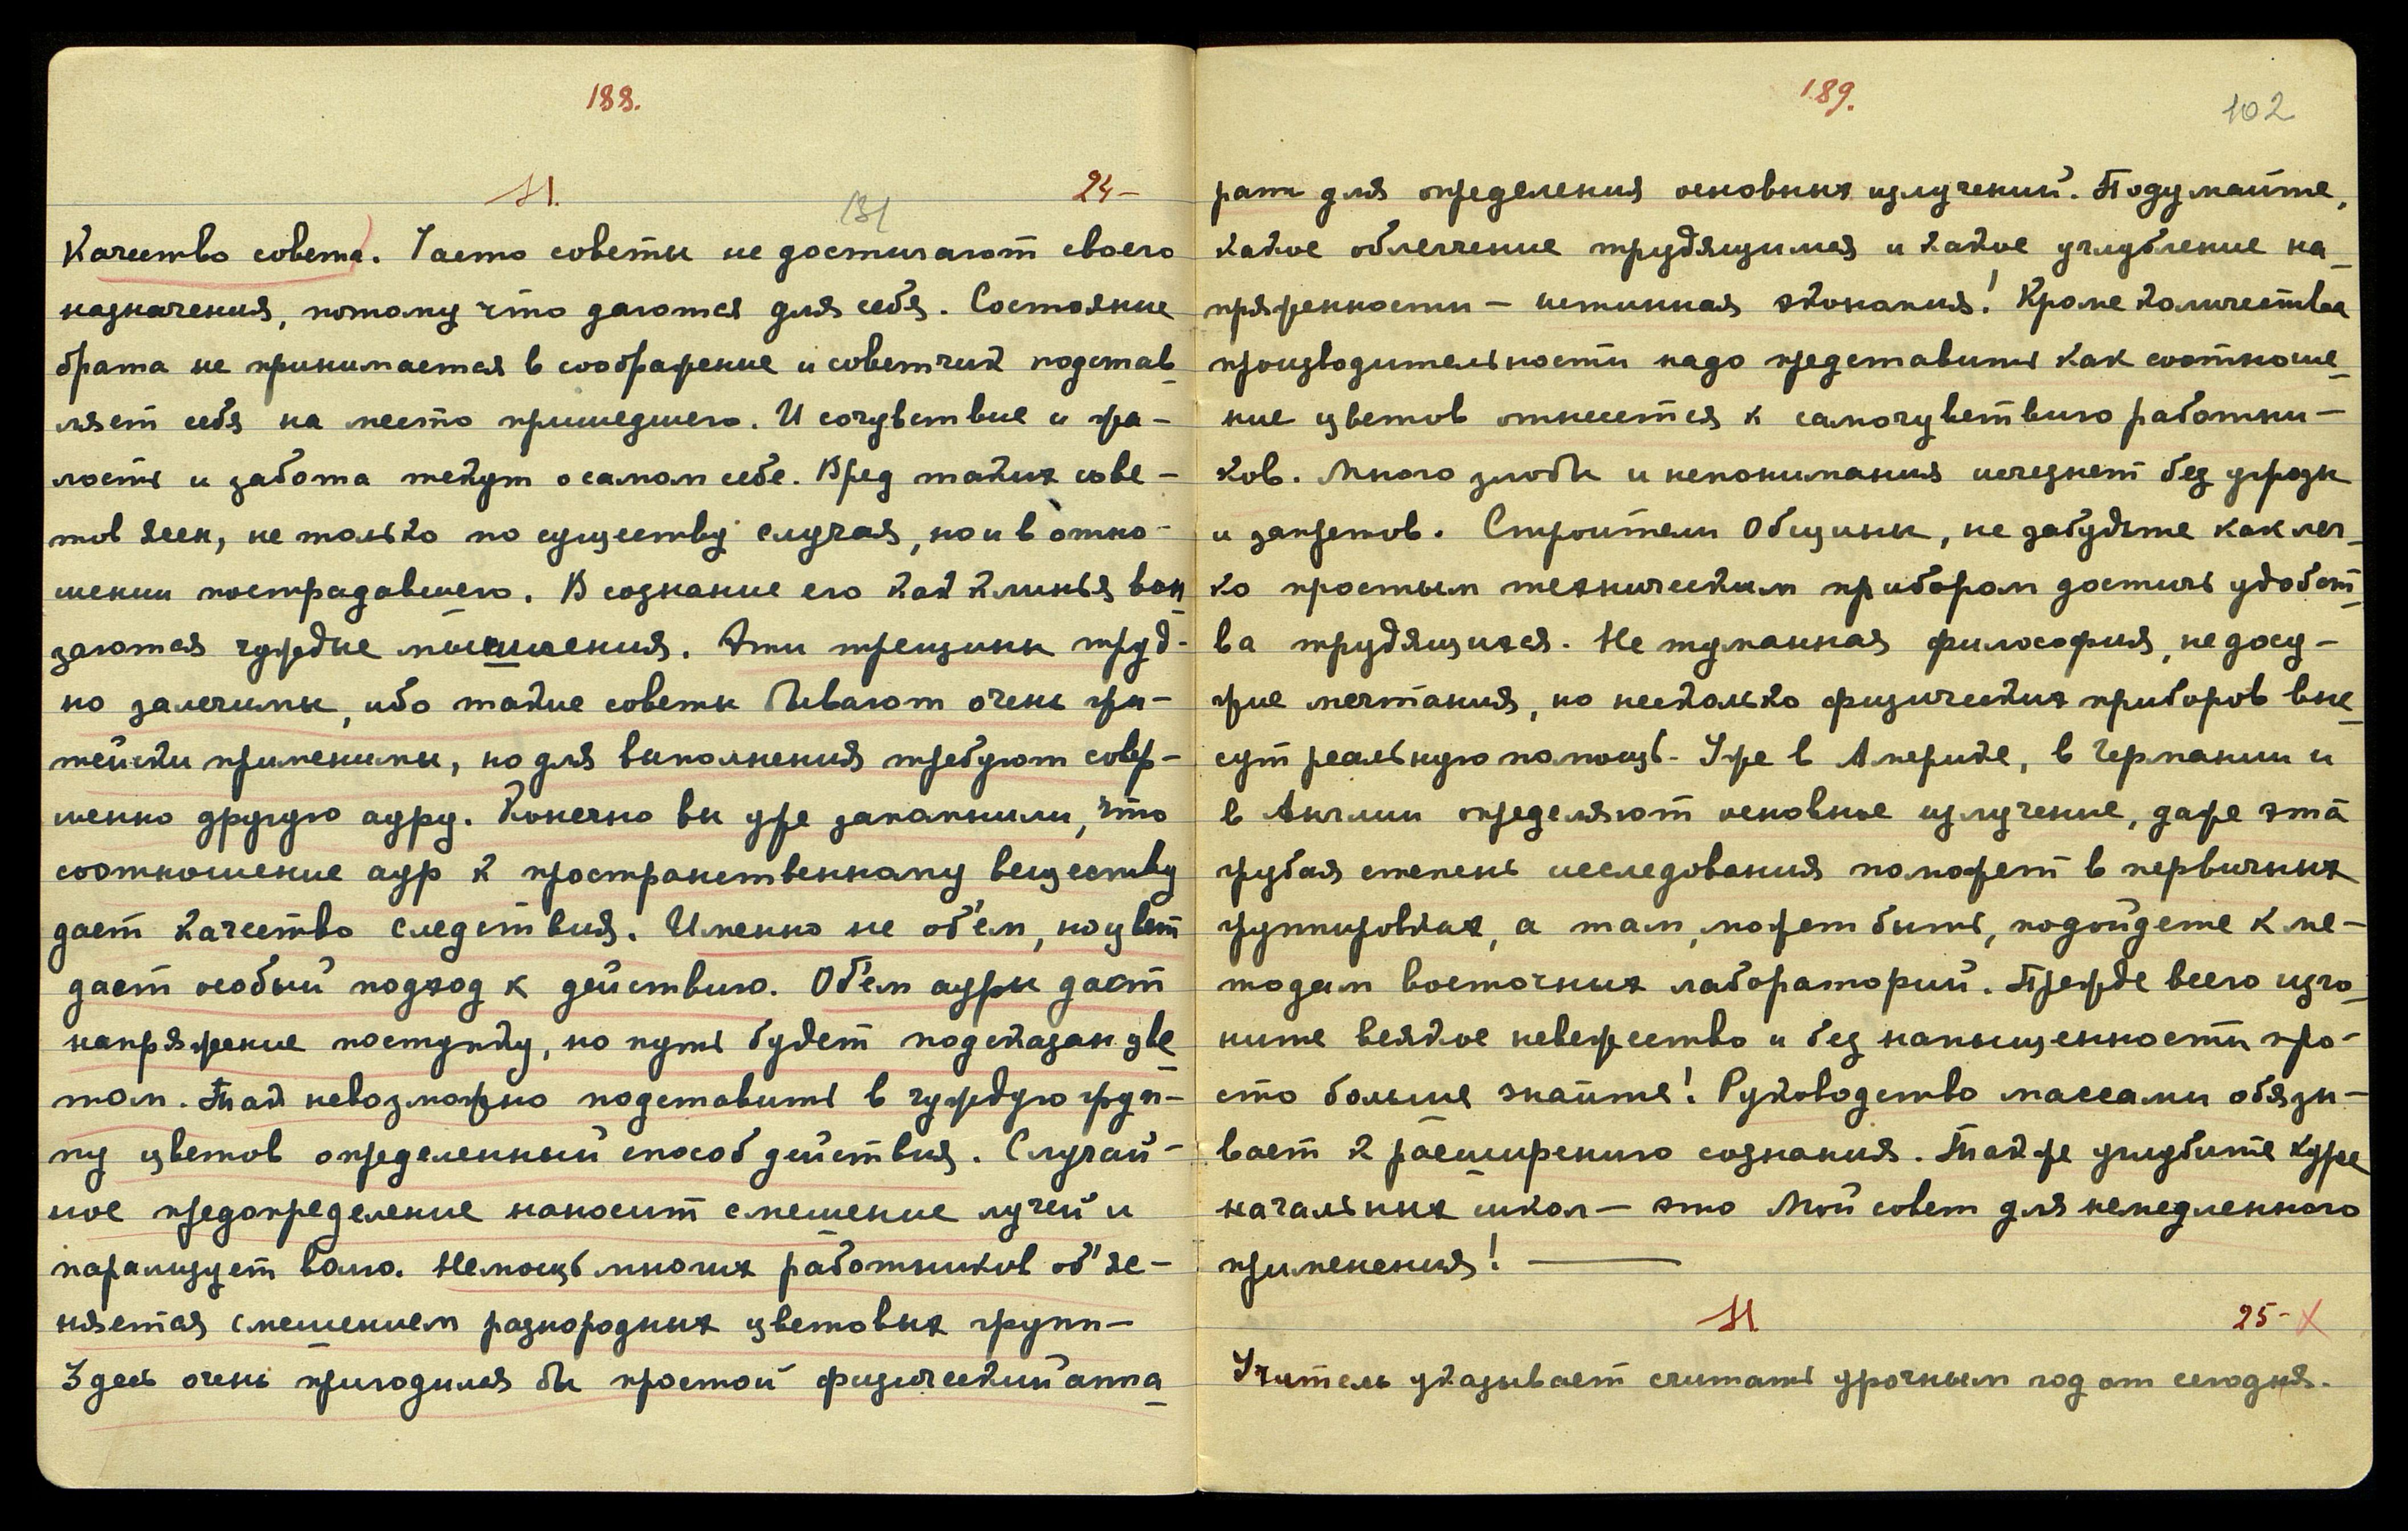 188.
24–
131
Качество совета. Часто советы не достигают своего
назначения, потому что даются для себя. Состояние
брата не принимается в соображение и советчик подстав-
ляет себя на место пришедшего. И сочувствие и жа-
лость и забота текут о самом себе. Вред таких сове-
тов ясен, не только по существу случая, но и в отно-
шении пострадавшего. В сознание его как клинья вон-
заются чуждые мышления. Эти трещины труд-
но залечимы, ибо такие советы бывают очень жи-
тейски применимы, но для выполнения требуют совер-
шенно другую ауру. Конечно вы уже запомнили, что
соотношение аур к пространственному веществу
дает качество следствия. Именно не об'ем, но цвет
дает особый подход к действию. Об'ем ауры дает
напряжение поступку, но путь будет подсказан цве-
том. Так невозможно подставить в чуждую груп-
пу цветов определенный способ действия. Случай-
ное предопределение наносит смешение лучей и
парализует волю. Немощь многих работников об'яс-
няется смешением разнородных цветовых групп –
Здесь очень пригодился бы простой физический аппа-
189.
102
рат для определения основных излучений. Подумайте,
какое облегчение трудящимся и какое углубление на-
пряженности – истинная экономия! Кроме количества
производительности надо представить как соотноше-
ние цветов отнесется к самочувствию работни-
ков. Много злобы и непонимания исчезнет без угрозы
и запретов. Строители Общины, не забудьте как лег-
ко простым техническим прибором достичь удобст-
ва трудящихся. Не туманная философия, не досу-
жие мечтания, но несколько физических приборов вне-
сут реальную помощь – Уже в Америке, в Германии и
в Англии определяют основное излучение, даже эта
грубая степень исследования поможет в первичных
группировках, а там, может быть, подойдете к ме-
тодам восточных лабораторий. Прежде всего изго-
ните всякое невежество и без напыщенности про-
сто больше знайте! Руководство массами обязы-
вает к расширению сознания. Также углубите курс
начальных школ – это Мой совет для немедленного
применения! —
25– X
Учитель указывает считать урочным год от сегодня.